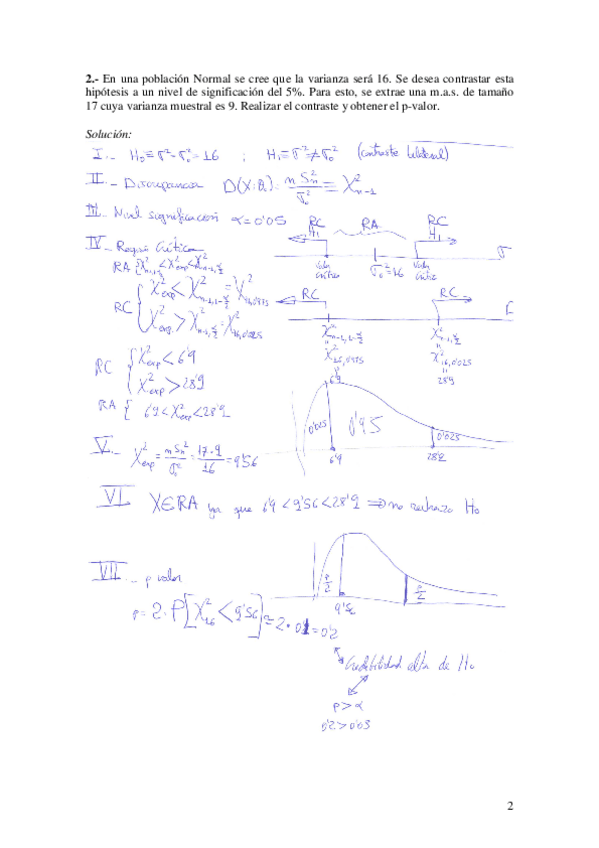 2.- En una población Normal se cree que la varianza será 16. Se desea contrastar esta
hipótesis a un nivel de significación del 5%. Para esto, se extrae una m.a.s. de tamaño
17 cuya varianza muestral es 9. Realizar el contraste y obtener el p-valor.
Solución:
I.- H₀≡σ²=σ₀²=16 ; H₁≡σ²≠σ₀² (contraste bilateral)
II.- Discrepancia D(X;θ₀): n Sₙ²/σ₀² ≡ χ²ₙ₋₁
III.- Nivel significación α=0'05
RC H₁ RA RC H₁
valor crítico σ₀²=16 valor crítico
IV.- Región Crítica
RA {χ²ₙ₋₁, <χ²exp<χ²ₙ₋₁,α/2
RC { χ²exp<χ²ₙ₋₁,₁₋α/2=χ²₁₆,₀'₉₇₅
χ²exp>χ²ₙ₋₁,α/2=χ²₁₆,₀'₀₂₅
RC RC
χ²ₙ₋₁,₁₋α/2 χ²ₙ₋₁,α/2
χ²₁₆,₀'₉₇₅ χ²₁₆,₀'₀₂₅
6'9 28'9
RC { χ²exp<6'9
χ²exp>28'9
RA { 6'9<χ²exp<28'9
0'025 0'95 0'025
6'9 28'9
V.- χ²exp=n Sₙ²/σ₀²=17·9/16=9'56
VI X∈RA ya que 6'9<9'56<28'9 ⟹ no rechazo H₀
VII.- p valor
p/2 p/2
9'56
p=2·P[χ²₁₆<9'56]=2·0'1=0'2
Credibilidad alta de H₀
p>α
0'2>0'05
2